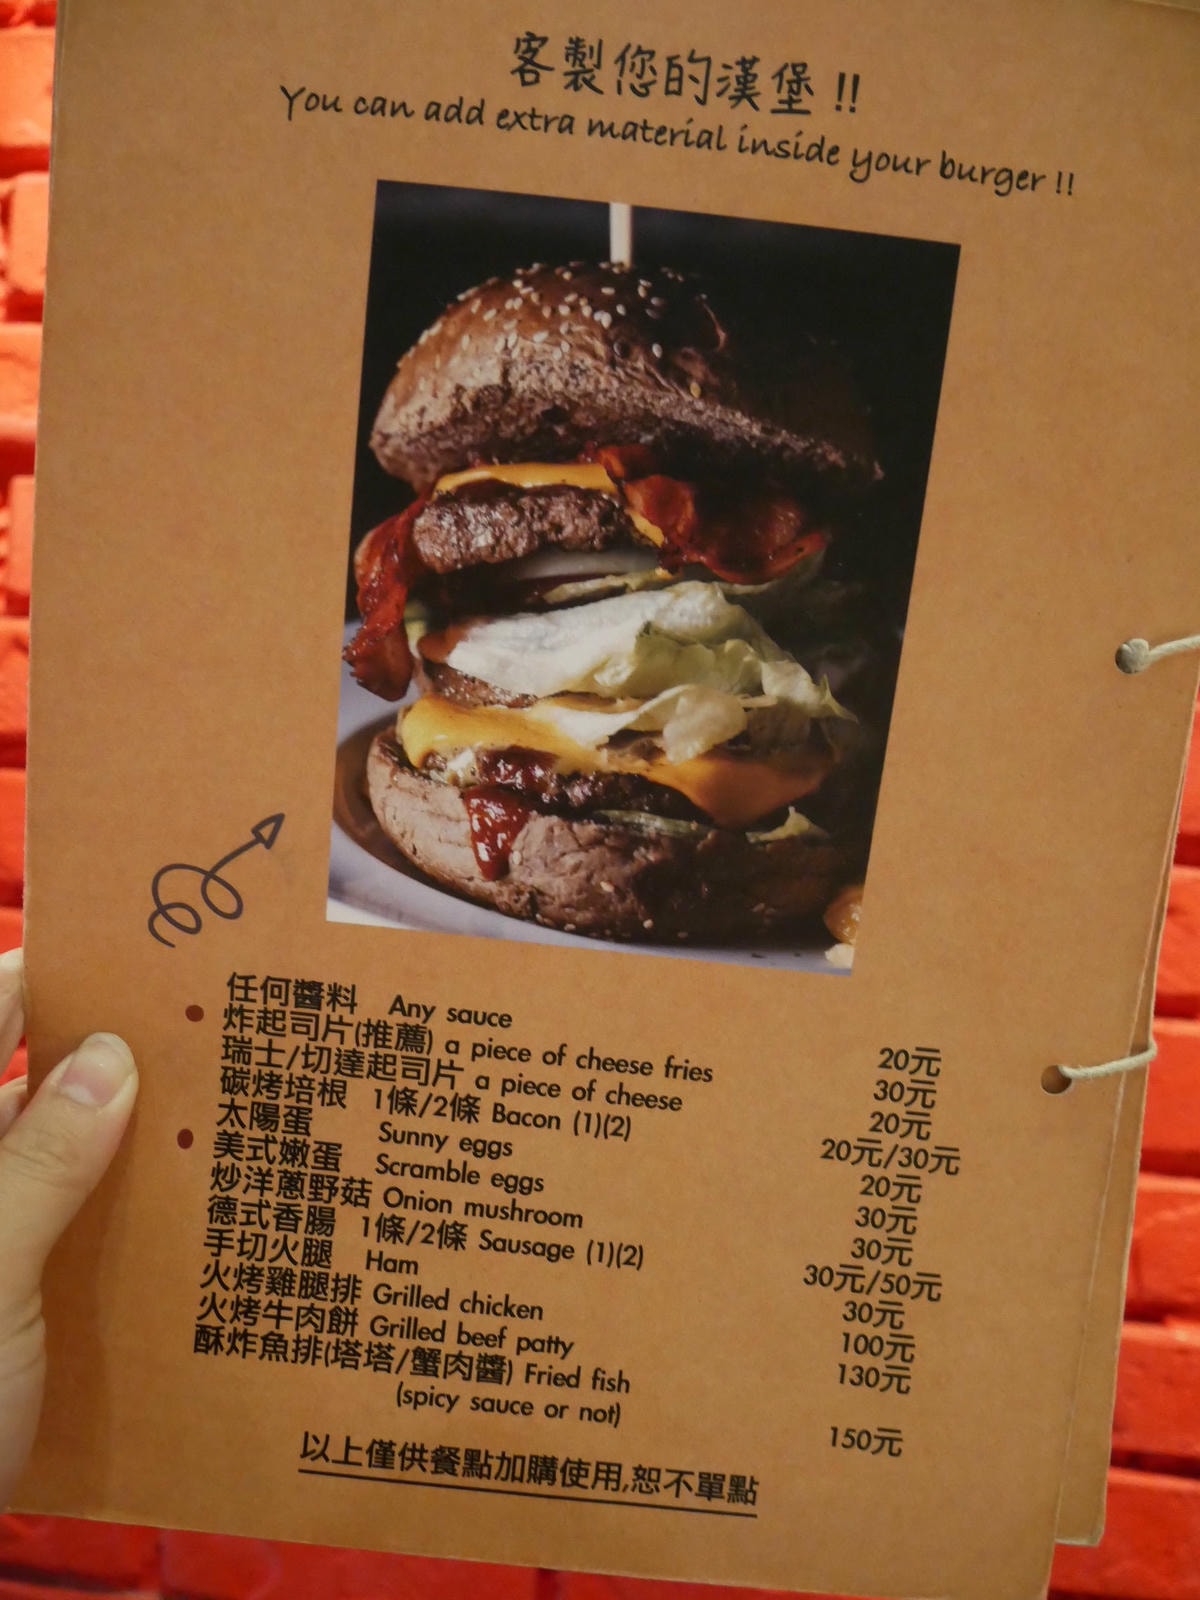 客製您的漢堡 !!
You can add extra material inside your burger !!
任何醬料 Any sauce 20元
炸起司片(推薦) a piece of cheese fries 30元
瑞士/切達起司片 a piece of cheese 20元
碳烤培根 1條/2條 Bacon (1)(2) 20元/30元
太陽蛋 Sunny eggs 20元
美式嫩蛋 Scramble eggs 30元
炒洋蔥野菇 Onion mushroom 30元
德式香腸 1條/2條 Sausage (1)(2) 30元/50元
手切火腿 Ham 30元
火烤雞腿排 Grilled chicken 100元
火烤牛肉餅 Grilled beef patty 130元
酥炸魚排(塔塔/蟹肉醬) Fried fish 150元
(spicy sauce or not)
以上僅供餐點加購使用,恕不單點